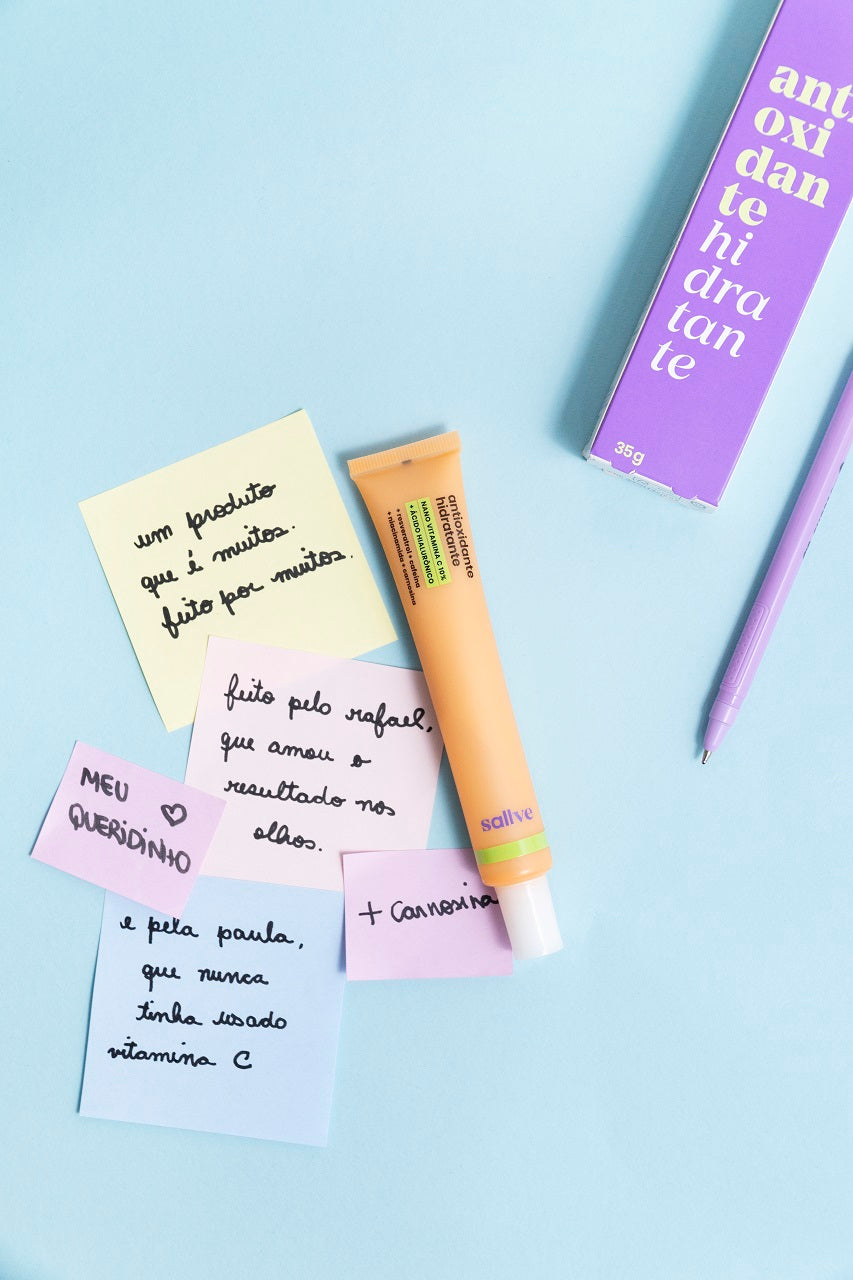 anti
oxi
dan
te
hi
dra
tan
te
35g
um produto
que é muitos.
feito por muitos.
antioxidante
hidratante
NANO VITAMINA C 10%
+ ÁCIDO HIALURÔNICO
+ resveratrol + cafeína
+ niacinamida + carnosina
sallve
feito pelo rafael,
que amou o
resultado nos
olhos.
MEU
QUERIDINHO
+ Carnosina
e pela paula,
que nunca
tinha usado
vitamina C